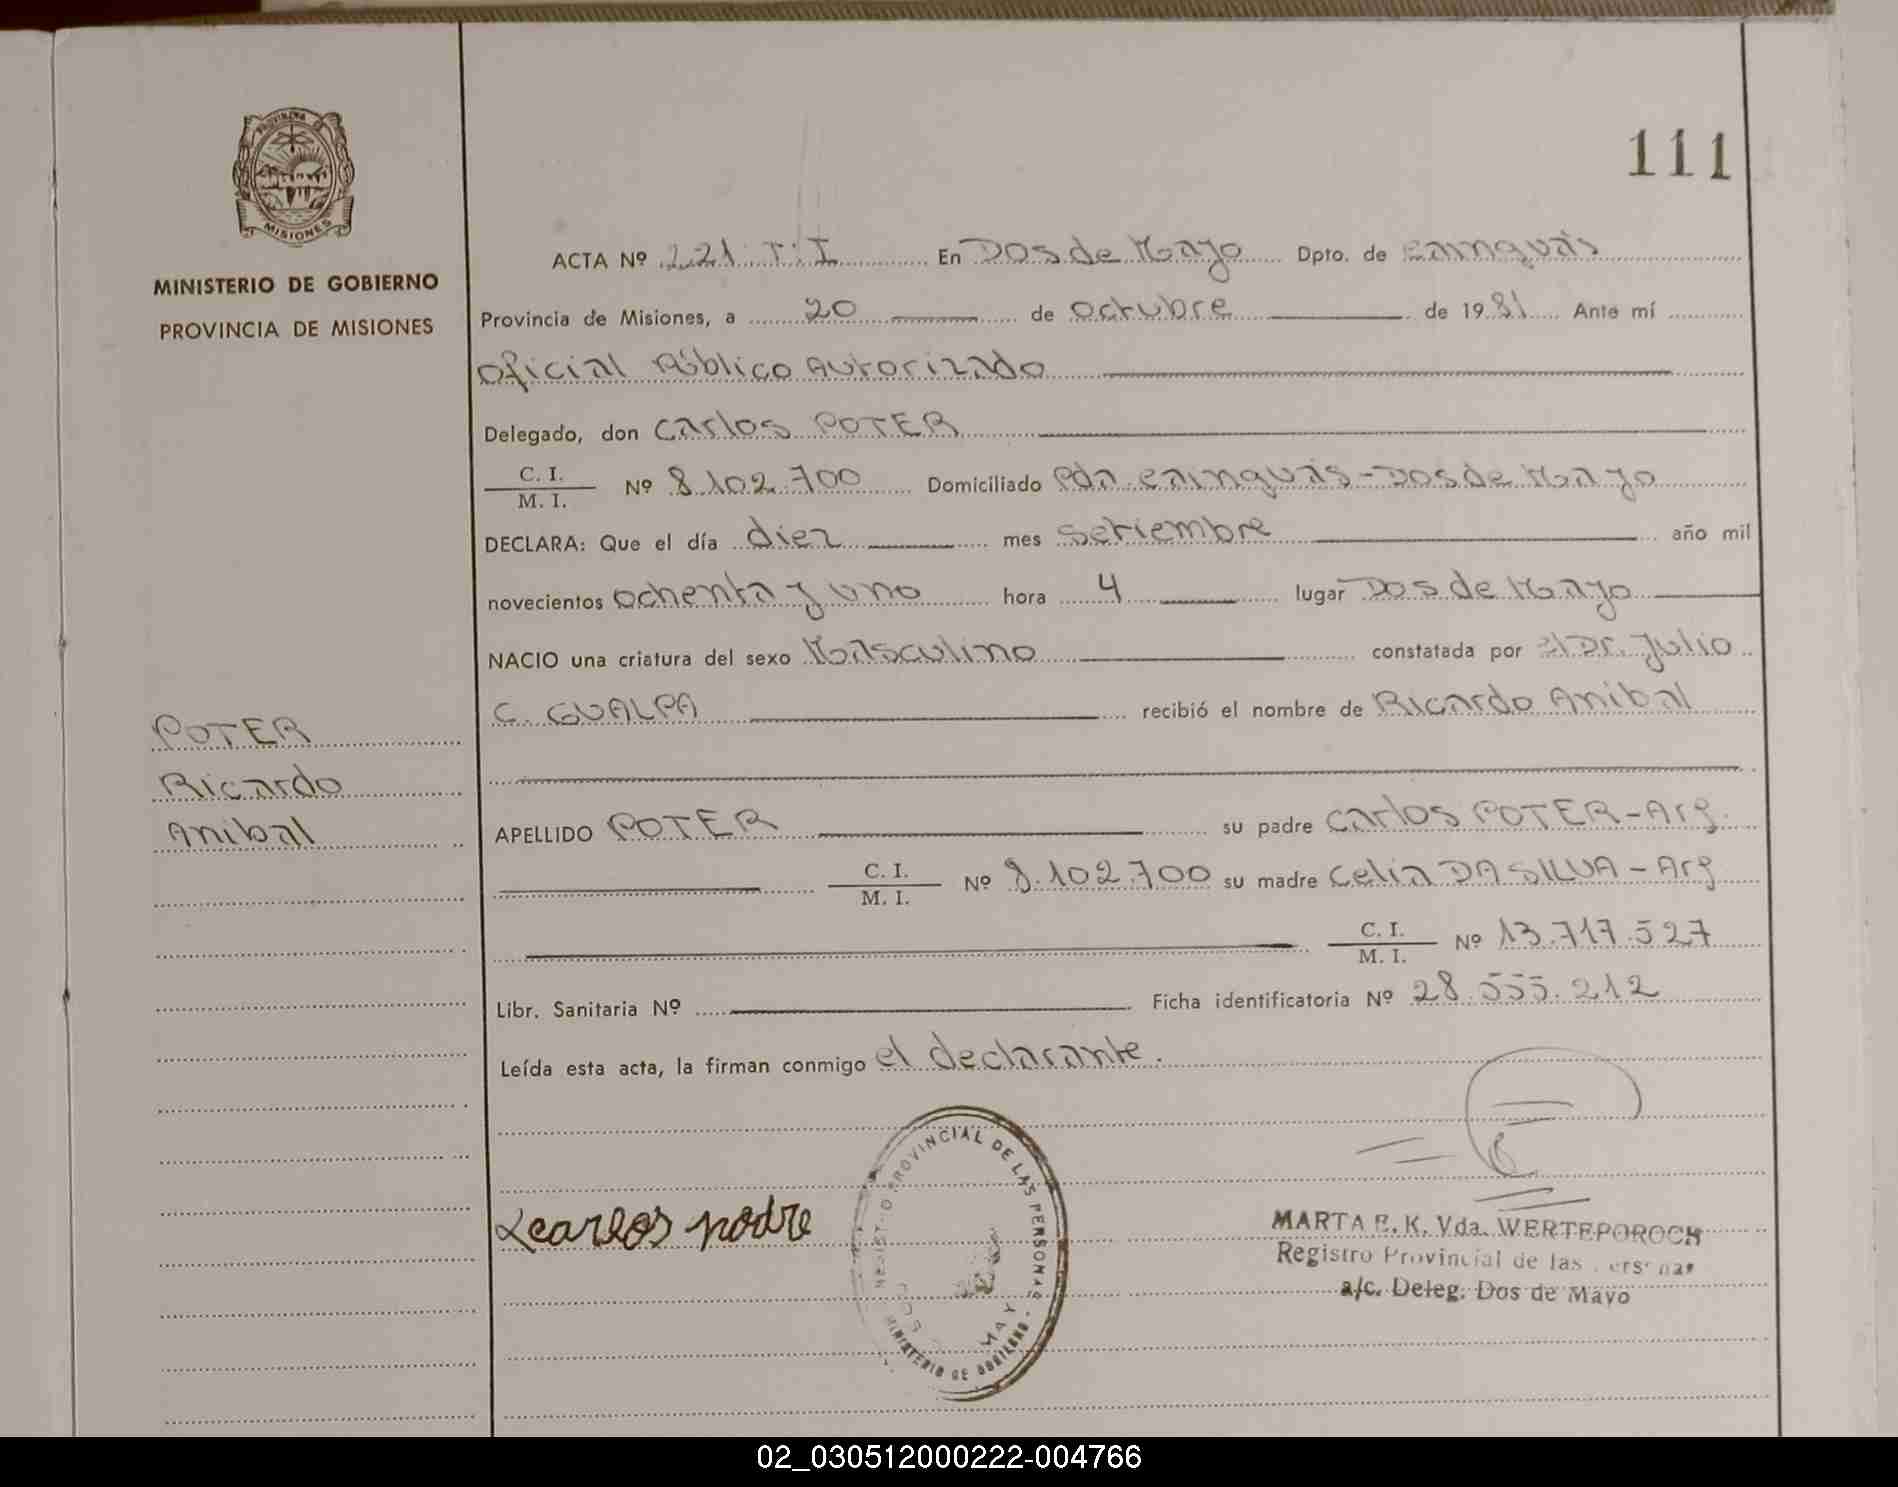 111
PROVINCIA DE
MISIONES
MINISTERIO DE GOBIERNO
PROVINCIA DE MISIONES
ACTA Nº 221 T: I En Dos de Mayo Dpto. de Cainguás
Provincia de Misiones, a 20 de octubre de 1981 Ante mí
Oficial Público Autorizado
Delegado, don Carlos POTER
C. I.
M. I. Nº 8.102.700 Domiciliado Pda Cainguás-Dos de Mayo
DECLARA: Que el día diez mes setiembre año mil
novecientos ochenta y uno hora 4 lugar Dos de Mayo
NACIO una criatura del sexo Masculino constatada por el Dr. Julio
C. GUALPA recibió el nombre de Ricardo Anibal
POTER
Ricardo
Anibal
APELLIDO POTER su padre Carlos POTER-Arg.
C. I.
M. I. Nº 8.102.700 su madre Celia DA SILVA - Arg
C. I.
M. I. Nº 13.717.527
Libr. Sanitaria Nº Ficha identificatoria Nº 28.555.212
Leída esta acta, la firman conmigo el declarante.
REGISTRO PROVINCIAL DE LAS PERSONAS
MINISTERIO DE GOBIERNO
DOS MAY
carlos
MARTA E. K. Vda. WERTEPOROCH
Registro Provincial de las Personas
a/c. Deleg. Dos de Mayo
02_030512000222-004766